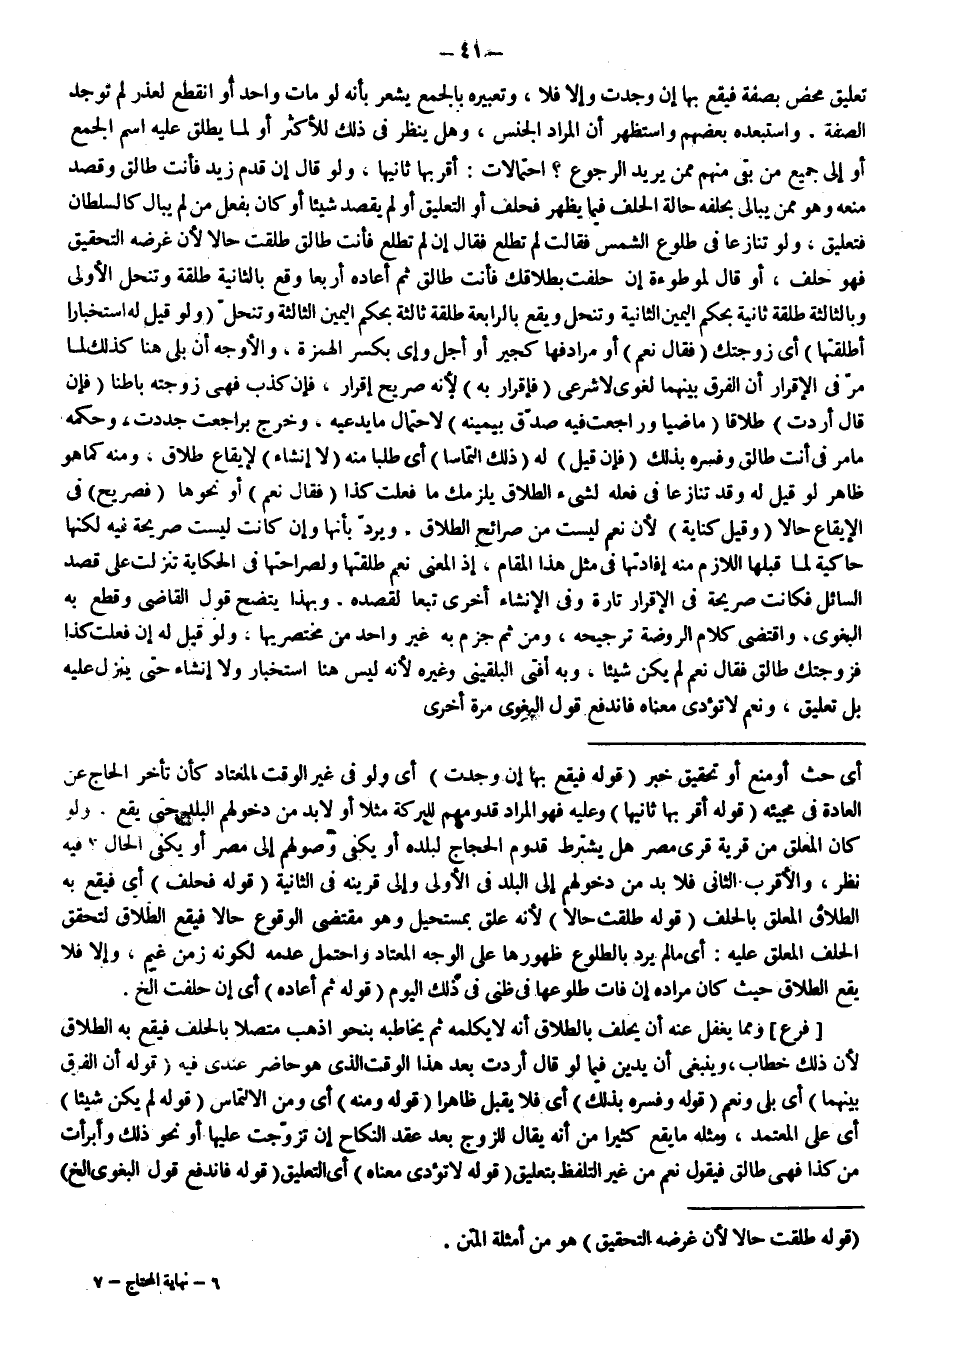 — ٤١ —
تعليق محض بصفة فيقع بها إن وجدت وإلا فلا ، وتعبيره بالجمع يشعر بأنه لو مات واحد أو انقطع لعذر لم توجد
الصفة . واستبعده بعضهم واستظهر أن المراد الجنس ، وهل ينظر فى ذلك للأكثر أو لمـا يطلق عليه اسم الجمع
أو إلى جميع من بقى منهم ممن يريد الرجوع ؟ احتمالات : أقربها ثانيها ، ولو قال إن قدم زيد فأنت طالق وقصد
منعه وهو ممن يبالى بحلفه حالة الحلف فيما يظهر فحلف أو التعليق أو لم يقصد شيئا أو كان بفعل من لم يبال كالسلطان
فتعليق ، ولو تنازعا فى طلوع الشمس فقالت لم تطلع فقال إن لم تطلع فأنت طالق طلقت حالا لأن غرضه التحقيق
فهو حلف ، أو قال لموطوءة إن حلفت بطلاقك فأنت طالق ثم أعاده أربعا وقع بالثانية طلقة وتنحل الأولى
وبالثالثة طلقة ثانية بحكم اليمين الثانية وتنحل ويقع بالرابعة طلقة ثالثة بحكم اليمين الثالثة وتنحلّ (ولو قيل له استخبارا
أطلقتها ) أى زوجتك ( فقال نعم ) أو مرادفها كجير أو أجل وإى بكسر الهمزة ، والأوجه أن بلى هنا كذلك لمـا
مرّ فى الإقرار أن الفرق بينهما لغوى لا شرعى ( فإقرار به ) لأنه صريح إقرار ، فإن كذب فهى زوجته باطنا ( فإن
قال أردت ) طلاقا ( ماضيا وراجعت فيه صدّق بيمينه ) لاحتمال ما يدعيه ، وخرج براجعت جددت ، وحكمه
مامر فى أنت طالق وفسره بذلك ( فإن قيل ) له ( ذلك التماسا ) أى طلبا منه ( لا إنشاء ) لإيقاع طلاق ، ومنه كما هو
ظاهر لو قيل له وقد تنازعا فى فعله لشىء الطلاق يلزمك ما فعلت كذا ( فقال نعم ) أو نحوها ( فصريح ) فى
الإيقاع حالا ( وقيل كناية ) لأن نعم ليست من صرائح الطلاق . ويردّ بأنها وإن كانت ليست صريحة فيه لكنها
حاكية لمـا قبلها اللازم منه إفادتها فى مثل هذا المقام ، إذ المعنى نعم طلقتها ولصراحتها فى الحكاية تنزلت على قصد
السائل فكانت صريحة فى الإقرار تارة وفى الإنشاء أخرى تبعا لقصده . وبهذا يتضح قول القاضى وقطع به
البغوى. واقتضى كلام الروضة ترجيحه ، ومن ثم جزم به غير واحد من مختصريها ، ولو قيل له إن فعلت كذا
فزوجتك طالق فقال نعم لم يكن شيئا ، وبه أفتى البلقينى وغيره لأنه ليس هنا استخبار ولا إنشاء حتى ينزل عليه
بل تعليق ، ونعم لا تؤدى معناه فاندفع قول البغوى مرة أخرى
أى حث أو منع أو تحقيق خبر ( قوله فيقع بها إن وجدت ) أى ولو فى غير الوقت المعتاد كأن تأخر الحاج عن
العادة فى مجيئه ( قوله أقربها ثانيها ) وعليه فهو المراد قدومهم للبركة مثلا أو لابد من دخولهم البلد حتى يقع . ولو
كان المعلق من قرية قرى مصر هل يشترط قدوم الحجاج لبلده أو يكفى وصولهم إلى مصر أو يكفى الحال ؟ فيه
نظر ، والأقرب الثانى فلا بد من دخولهم إلى البلد فى الأولى وإلى قرينه فى الثانية ( قوله فحلف ) أى فيقع به
الطلاق المعلق بالحلف ( قوله طلقت حالا ) لأنه علق بمستحيل وهو مقتضى الوقوع حالا فيقع الطلاق لتحقق
الحلف المعلق عليه : أى مالم يرد بالطلوع ظهورها على الوجه المعتاد واحتمل عدمه لكونه زمن غيم ، وإلا فلا
يقع الطلاق حيث كان مراده إن فات طلوعها فى ظنى فى ذلك اليوم ( قوله ثم أعاده ) أى إن حلفت الخ .
[ فرع ] ومما يغفل عنه أن يحلف بالطلاق أنه لا يكلمه ثم يخاطبه بنحو اذهب متصلا بالحلف فيقع به الطلاق
لأن ذلك خطاب ، وينبغى أن يدين فيما لو قال أردت بعد هذا الوقت الذى هو حاضر عندى فيه ( قوله أن الفرق
بينهما ) أى بلى ونعم ( قوله وفسره بذلك ) أى فلا يقبل ظاهرا ( قوله ومنه ) أى ومن الالتماس ( قوله لم يكن شيئا )
أى على المعتمد ، ومثله مايقع كثيرا من أنه يقال للزوج بعد عقد النكاح إن تزوّجت عليها أو نحو ذلك وأبرأت
من كذا فهى طالق فيقول نعم من غير التلفظ بتعليق ( قوله لا تؤدى معناه ) أى التعليق ( قوله فاندفع قول البغوى الخ )
(قوله طلقت حالا لأن غرضه التحقيق ) هو من أمثلة المتن .
٦ – نهاية المحتاج – ٧